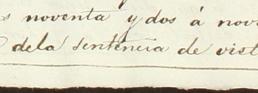 noventa y dos á nov
dela sentencia de vist